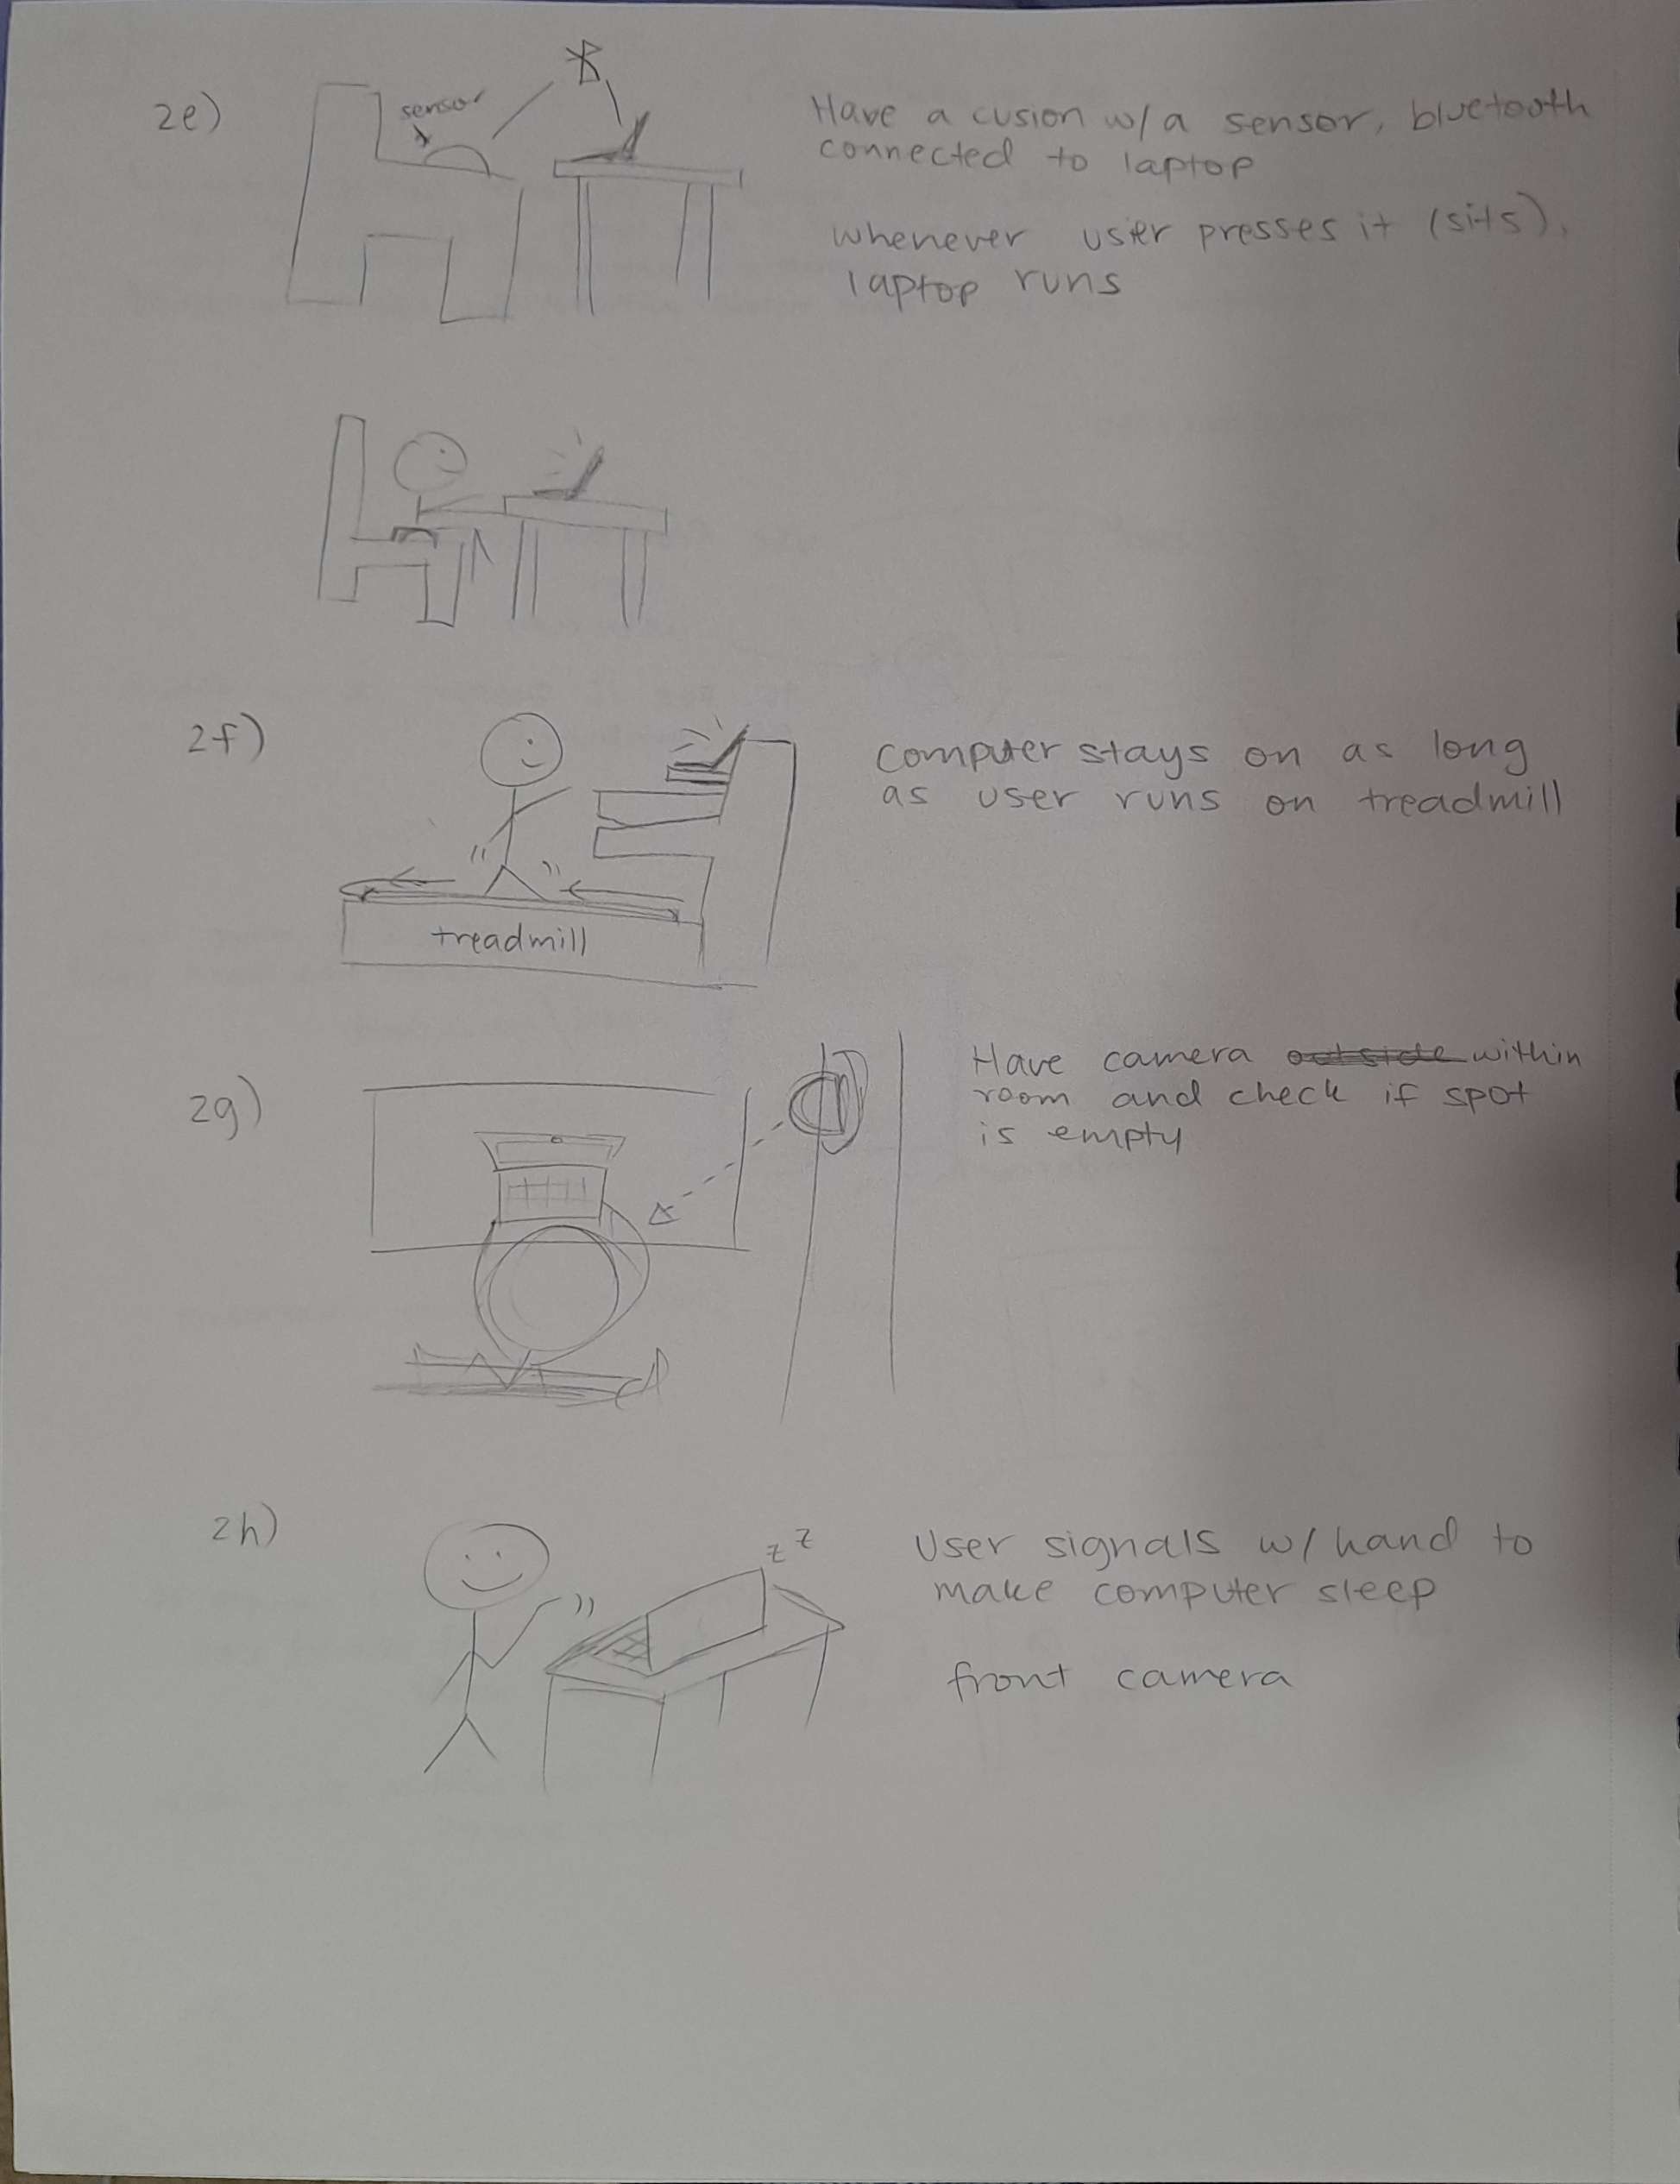 2e)
sensor
Have a cusion w/a sensor, bluetooth
connected to laptop
whenever user presses it (sits),
laptop runs
2f)
treadmill
computer stays on as long
as user runs on treadmill
2g)
Have camera outside within
room and check if spot
is empty
2h)
z z
User signals w/ hand to
make computer sleep
front camera